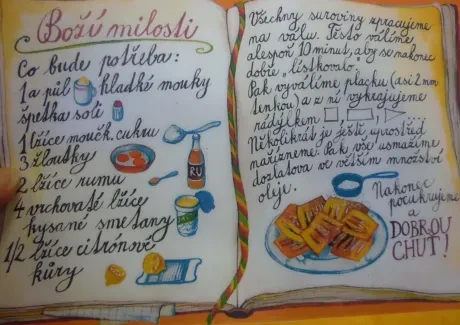 Boží milosti
Co bude potřeba:
1 a půl hladké mouky
špetka soli
1 lžíce moučk. cukru
3 žloutky
2 lžíce rumu
RU
4 vrchovaté lžíce
kysané smetany
1/2 lžíce citrónové
kůry
Všechny suroviny zpracujeme
na válu. Těsto válíme
alespoň 10 minut, aby se nakonec
dobře „lístkovalo“.
Pak vyválíme placku (asi 2 mm
tenkou) a z ní vykrajujeme
rádýlkem
Několikrát je ještě uprostřed
nařízneme. Pak vše usmažíme
dozlatova ve větším množství
oleje.
Nakonec
pocukrujeme
a
DOBROU
CHUŤ!